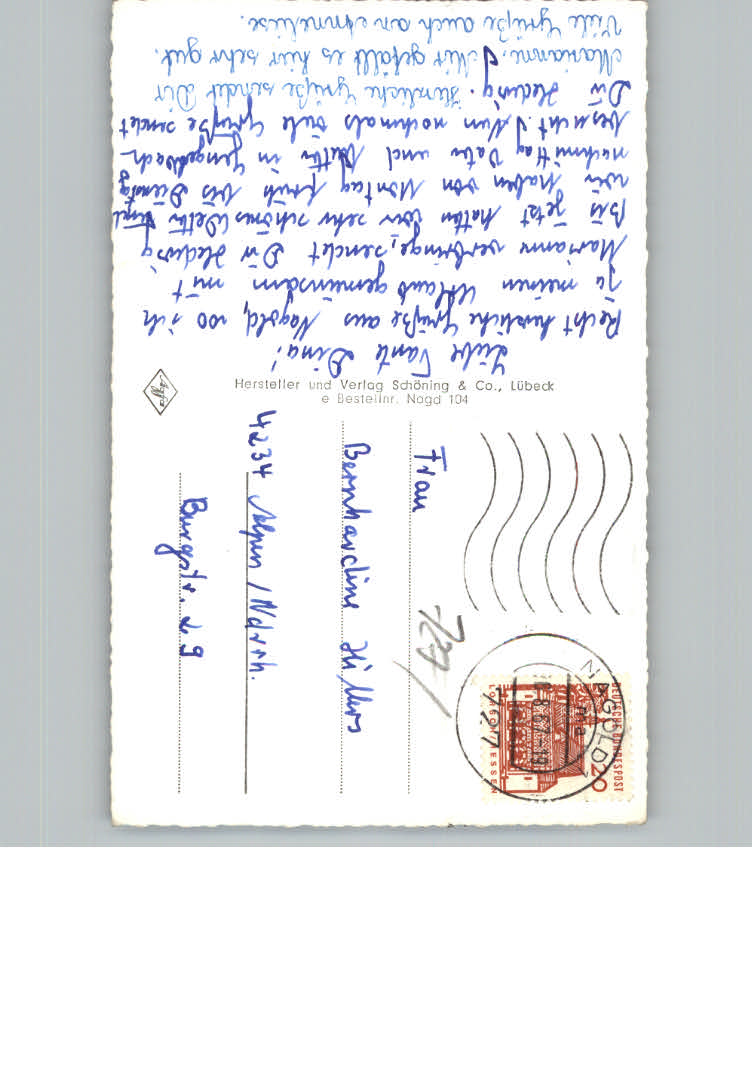 Liebe Tante Dina!
Recht herzliche Grüße aus Nagold, wo ich
zu meinen Urlaub gemeinsam mit
Marianne verbringe, sendet Dir Hedwig
Bis jetzt hatten wir sehr schönes Wetter
wir haben von Montag früh bis Dienstag
nachmittag Vater und Mutter in Gengenbach
besucht. Nun nochmals viele Grüße sendet
Dir Hedwig. Herzliche Grüße sendet Dir
Marianne. Mir gefällt es hier sehr gut.
Viele Grüße auch an Anneliese.
Hersteller und Verlag Schöning & Co., Lübeck
e Bestellnr. Nagd 104
Agfa
Frau
Bernhardine Hillers
4234 Alpen / Ndrrh.
Burgstr. 29
727
NAGOLD
ma
8.67-19
727
DEUTSCHE BUNDESPOST
20
LORSCH/HESSEN